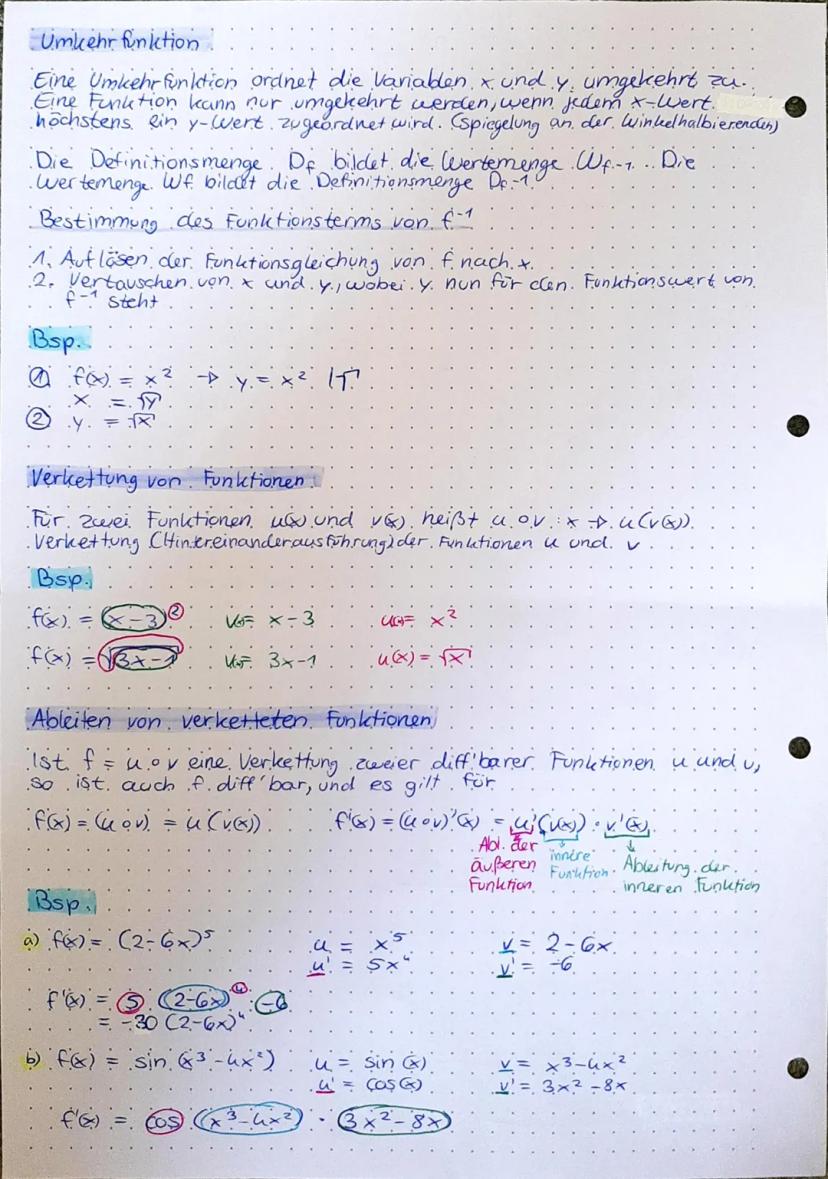 Umkehrfunktion
Eine Umkehrfunktion ordnet die Variablen x und y umgekehrt zu.
Eine Funktion kann nur umgekehrt werden, wenn jedem x-Wert
höchstens ein y-Wert zugeordnet wird. (Spiegelung an der Winkelhalbierenden)
Die Definitionsmenge Df bildet die Wertemenge Wf-1. Die
Wertemenge Wf bildet die Definitionsmenge Df-1
Bestimmung des Funktionsterms von f⁻¹
1. Auflösen der Funktionsgleichung von f nach x.
2. Vertauschen von x und y, wobei y nun für den Funktionswert von
f⁻¹ steht
Bsp.
① f(x) = x² → y = x² |√
x = √y
② y = √x
Verkettung von Funktionen
Für zwei Funktionen u(x) und v(x) heißt u∘v: x → u(v(x))
Verkettung (Hintereinanderausführung) der Funktionen u und v
Bsp.
f(x) = (x-3)² v(x)= x-3 u(x)= x²
f(x) = √3x-1 v(x)= 3x-1 u(x) = √x
Ableiten von verketteten Funktionen
Ist f = u∘v eine Verkettung zweier diff'barer Funktionen u und v,
so ist auch f diff'bar, und es gilt für
f(x) = (u∘v) = u(v(x)) f'(x) = (u∘v)'(x) = u'(v(x)) · v'(x)
Abl. der äußeren Funktion
innere Funktion
Ableitung der inneren Funktion
Bsp.
a) f(x) = (2-6x)⁵ u = x⁵ v = 2-6x
u' = 5x⁴ v' = -6
f'(x) = 5 (2-6x)⁴ · -6
= -30 (2-6x)⁴
b) f(x) = sin (x³-4x²) u = sin (x) v = x³-4x²
u' = cos(x) v' = 3x²-8x
f'(x) = cos (x³-4x²) · (3x²-8x)